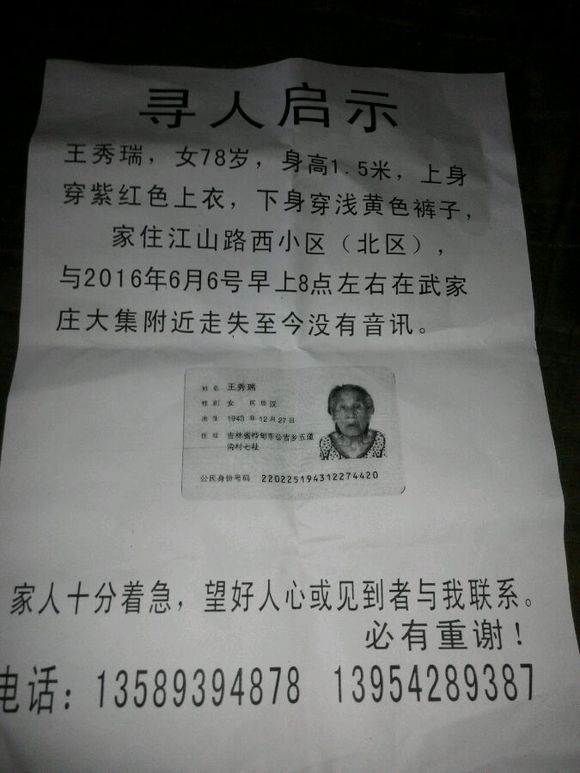 寻人启示
王秀瑞，女78岁，身高1.5米，上身
穿紫红色上衣，下身穿浅黄色裤子，
家住江山路西小区（北区），
与2016年6月6号早上8点左右在武家
庄大集附近走失至今没有音讯。
姓名 王秀瑞
性别 女 民族 汉
出生 1943 年 12 月 27 日
住址 吉林省桦甸市公吉乡五道
沟村七社
公民身份号码 220225194312274420
家人十分着急，望好人心或见到者与我联系。
必有重谢！
电话：13589394878 13954289387